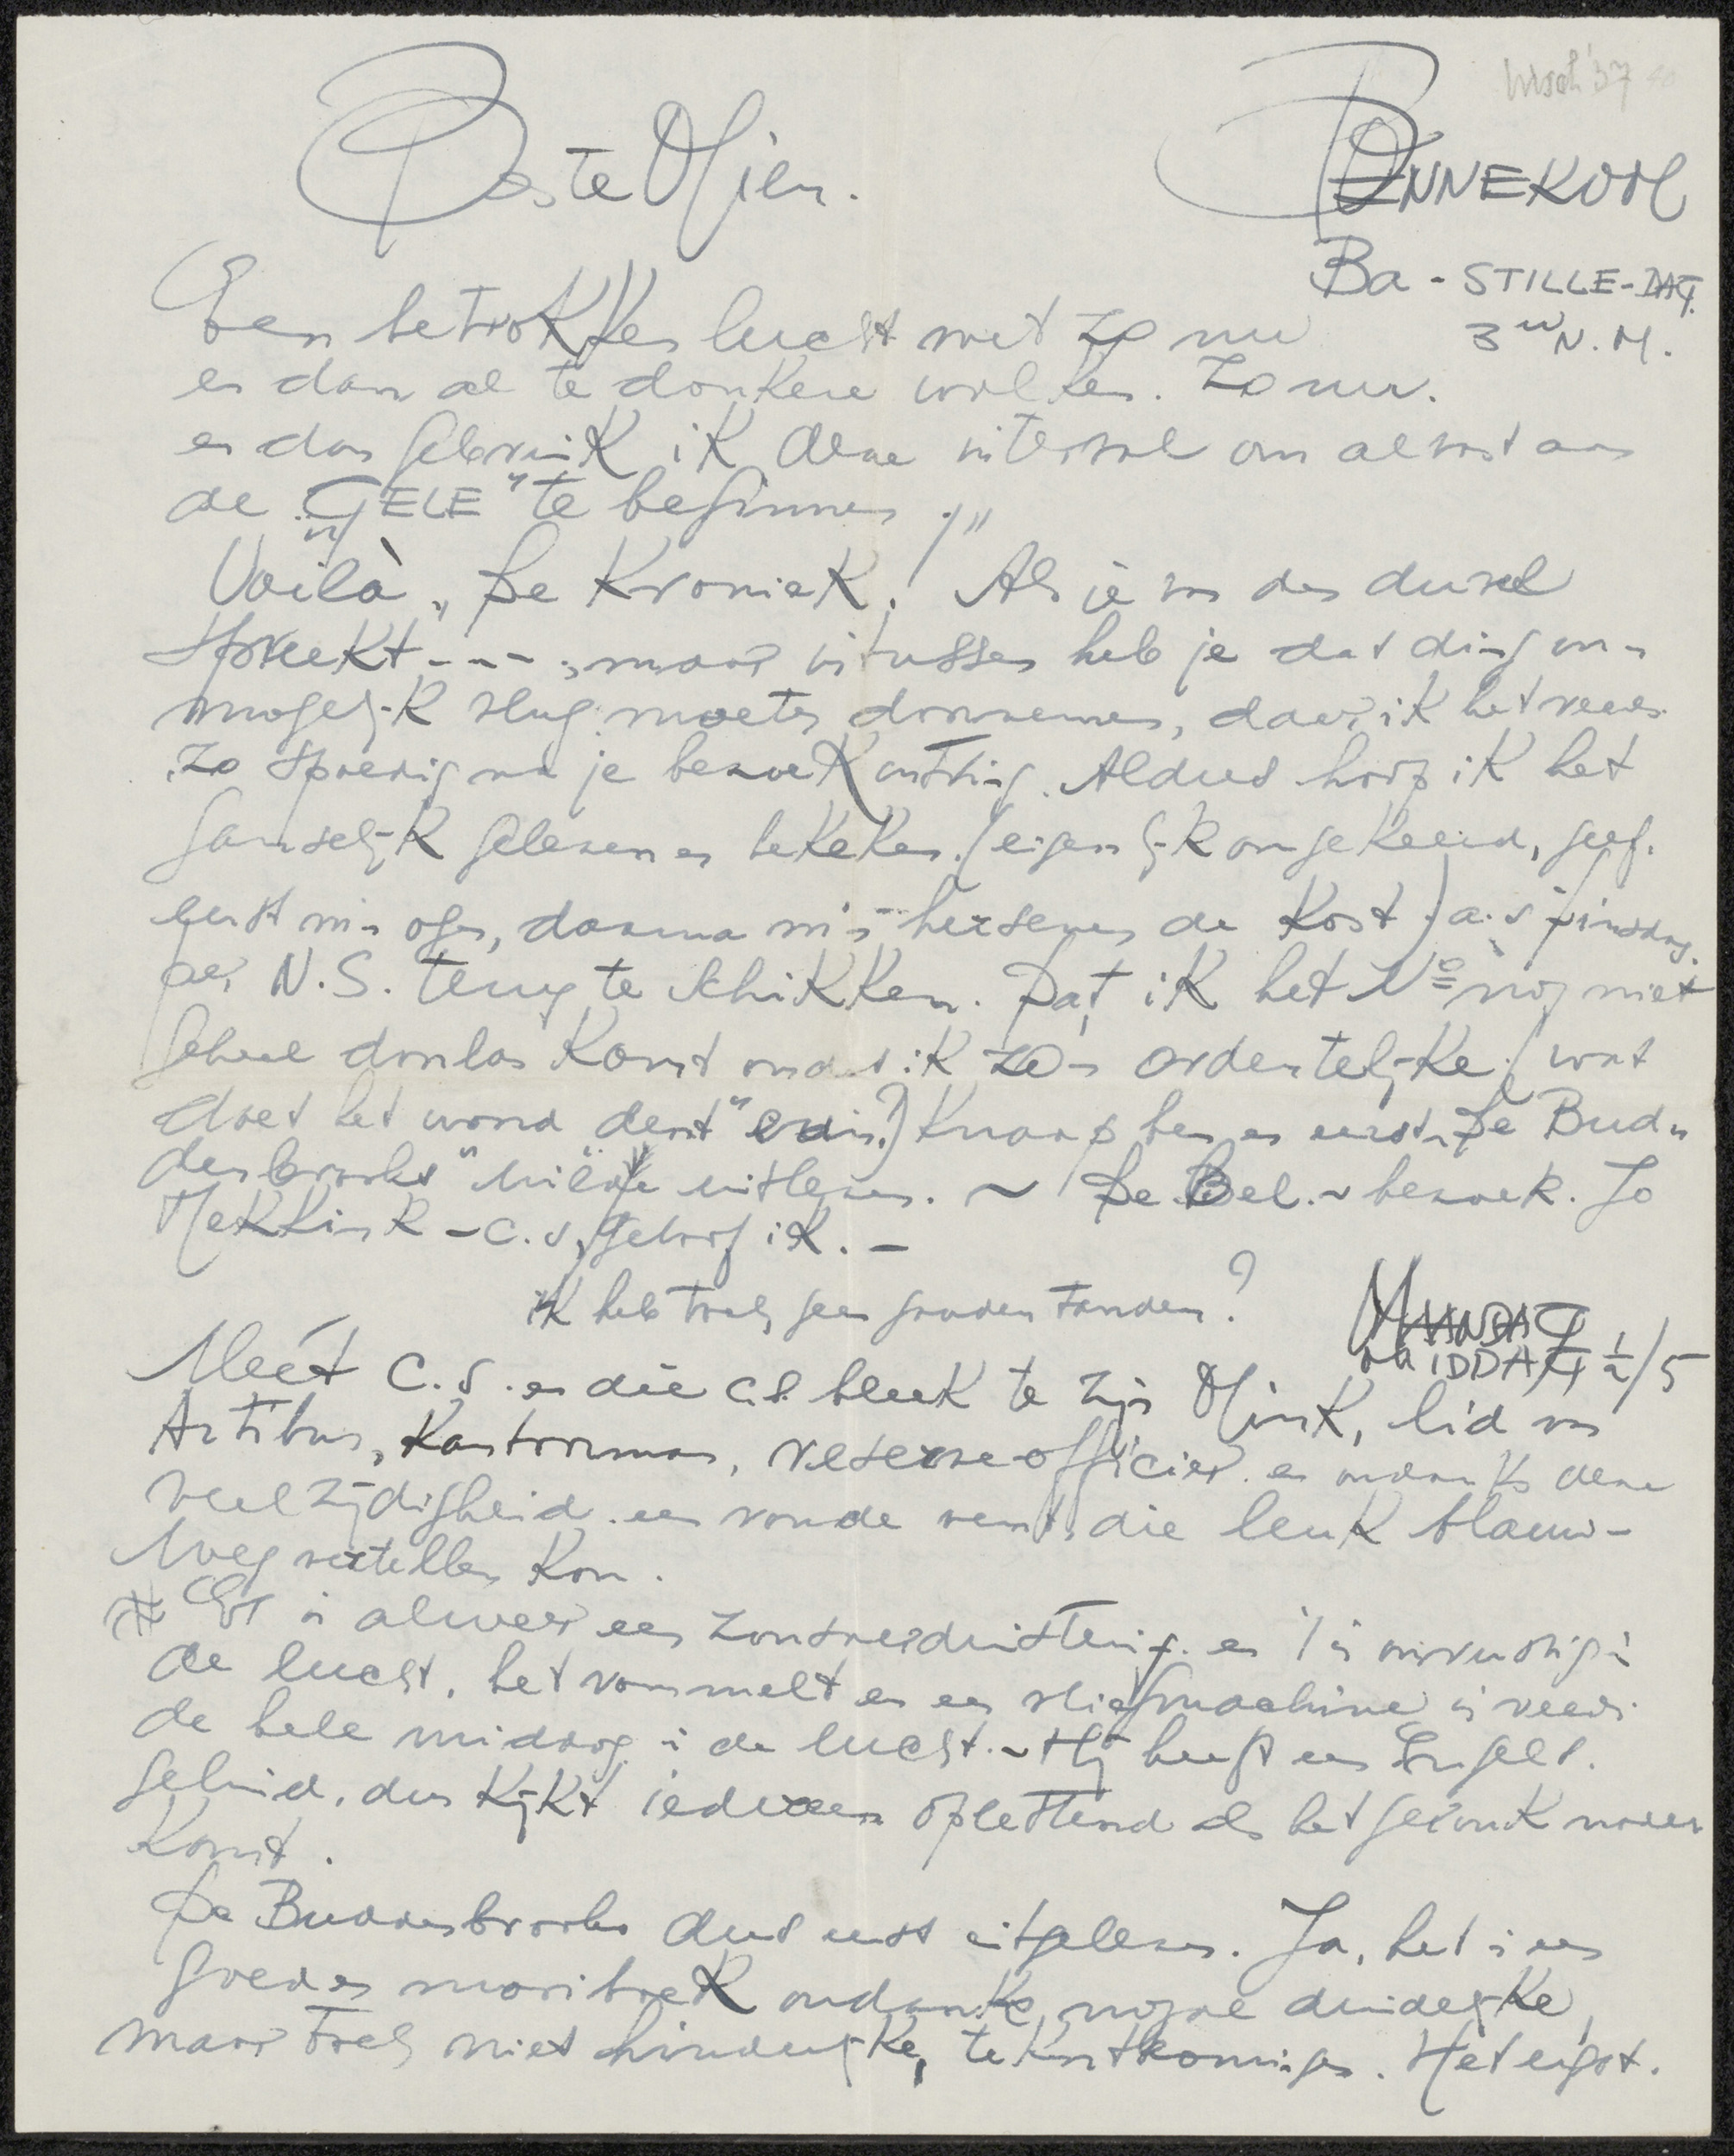 Beste Mien.
BENNEKOM
Ba - STILLE-DAG.
3 u N.M.
Een betrokken lucht met zo nu
en dan al te donkere wolken. Zo nu.
en dan gebruik ik deze interval om alvast aan
de "GELE" te beginnen.
Voilà "De Kroniek. Als je van den duvel
spreekt - - - ; maar intussen heb je dat ding on-
mogelijk vlug moeten doornemen, daar ik het reeds
zo spoedig na je bezoek ontving. Aldus hoop ik het
gauw gelezen en bekeken (eigenlijk omgekeerd, geef
eerst mijn ogen, daarna mijn hersenen de kost) a.s. dinsdag
per N.S. terug te schikken. Dat ik het No nog niet
geheel doorlas komt omdat ik zo'n ordentelijke (wat
doet het woord dent" erin?) knaap ben en eerst "De Bud-
denbrooks" wilde uitlezen. ~ De Bel. ~ bezoek. Jo
Mekkink - c.s. geloof ik. -
ik heb toch geen gouden tanden?
MAANDAG
MIDDAG ½/5
Meet c.s. en die c.s. bleek te zijn Mink, lid van
Artibus, kantoorman, reserve-officier en ondanks deze
veelzijdigheid een ronde vent, die leuk blauw-
weg vertellen kon.
# Er is alweer een zonsverduistering en 't is onrustig in
de lucht, het rommelt en een vliegmachine is reeds
de hele middag in de lucht. ~ Hij heeft een Engels.
geluid, dus kijkt iedereen oplettend als het geronk nader
komt.
De Buddenbrooks dus eerst uitgelezen. Ja, het is een
goed en mooi boek ondanks nogal duidelijke,
maar toch niet hinderlijke, tekortkomingen. Het eigst.